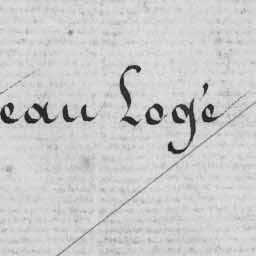 eau Logé